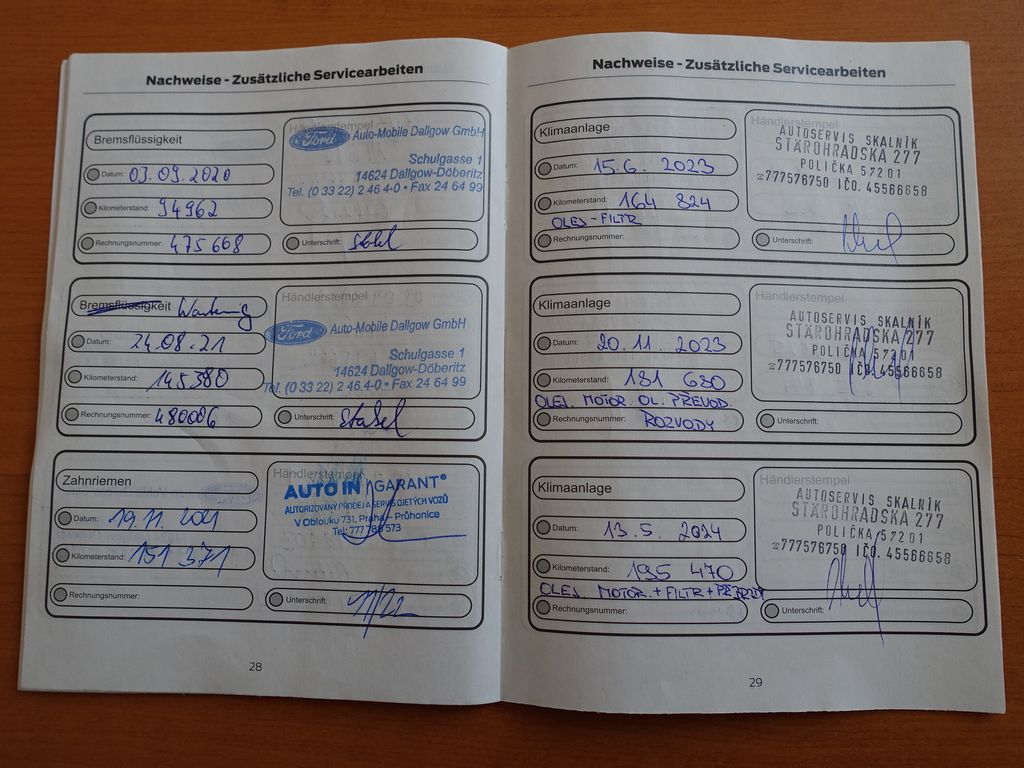 Nachweise - Zusätzliche Servicearbeiten
Bremsflüssigkeit
Händlerstempel
Ford Auto-Mobile Dallgow GmbH
Schulgasse 1
14624 Dallgow-Döberitz
Tel. (0 33 22) 2 46 4-0 • Fax 24 64 99
Datum: 03.09.2020
Kilometerstand: 94962
Rechnungsnummer: 475668
Unterschrift:
Bremsflüssigkeit Wartung
Händlerstempel
Ford Auto-Mobile Dallgow GmbH
Schulgasse 1
14624 Dallgow-Döberitz
Tel. (0 33 22) 2 46 4-0 • Fax 24 64 99
Datum: 24.08.21
Kilometerstand: 145380
Rechnungsnummer: 480006
Unterschrift:
Zahnriemen
Händlerstempel
AUTO IN GARANT®
AUTORIZOVANÝ PRODEJ A SERVIS OJETÝCH VOZŮ
V Oblouku 731, Praha - Průhonice
Tel: 777 788 573
Datum: 19.11.2021
Kilometerstand: 151 371
Rechnungsnummer:
Unterschrift:
28
Nachweise - Zusätzliche Servicearbeiten
Klimaanlage
Händlerstempel
AUTOSERVIS SKALNÍK
STAROHRADSKÁ 277
POLIČKA 572 01
☎777576750 IČO. 45566658
Datum: 15.6. 2023
Kilometerstand: 164 824
OLEJ - FILTR
Rechnungsnummer:
Unterschrift:
Klimaanlage
Händlerstempel
AUTOSERVIS SKALNÍK
STAROHRADSKÁ 277
POLIČKA 572 01
☎777576750 IČO. 45566658
Datum: 20.11. 2023
Kilometerstand: 181 680
OLEJ. MOTOR. OL. PŘEVOD.
Rechnungsnummer: ROZVODY
Unterschrift:
Klimaanlage
Händlerstempel
AUTOSERVIS SKALNÍK
STAROHRADSKÁ 277
POLIČKA 572 01
☎777576750 IČO. 45566658
Datum: 13.5. 2024
Kilometerstand: 195 470
OLEJ MOTOR. + FILTR +
Rechnungsnummer:
Unterschrift:
29